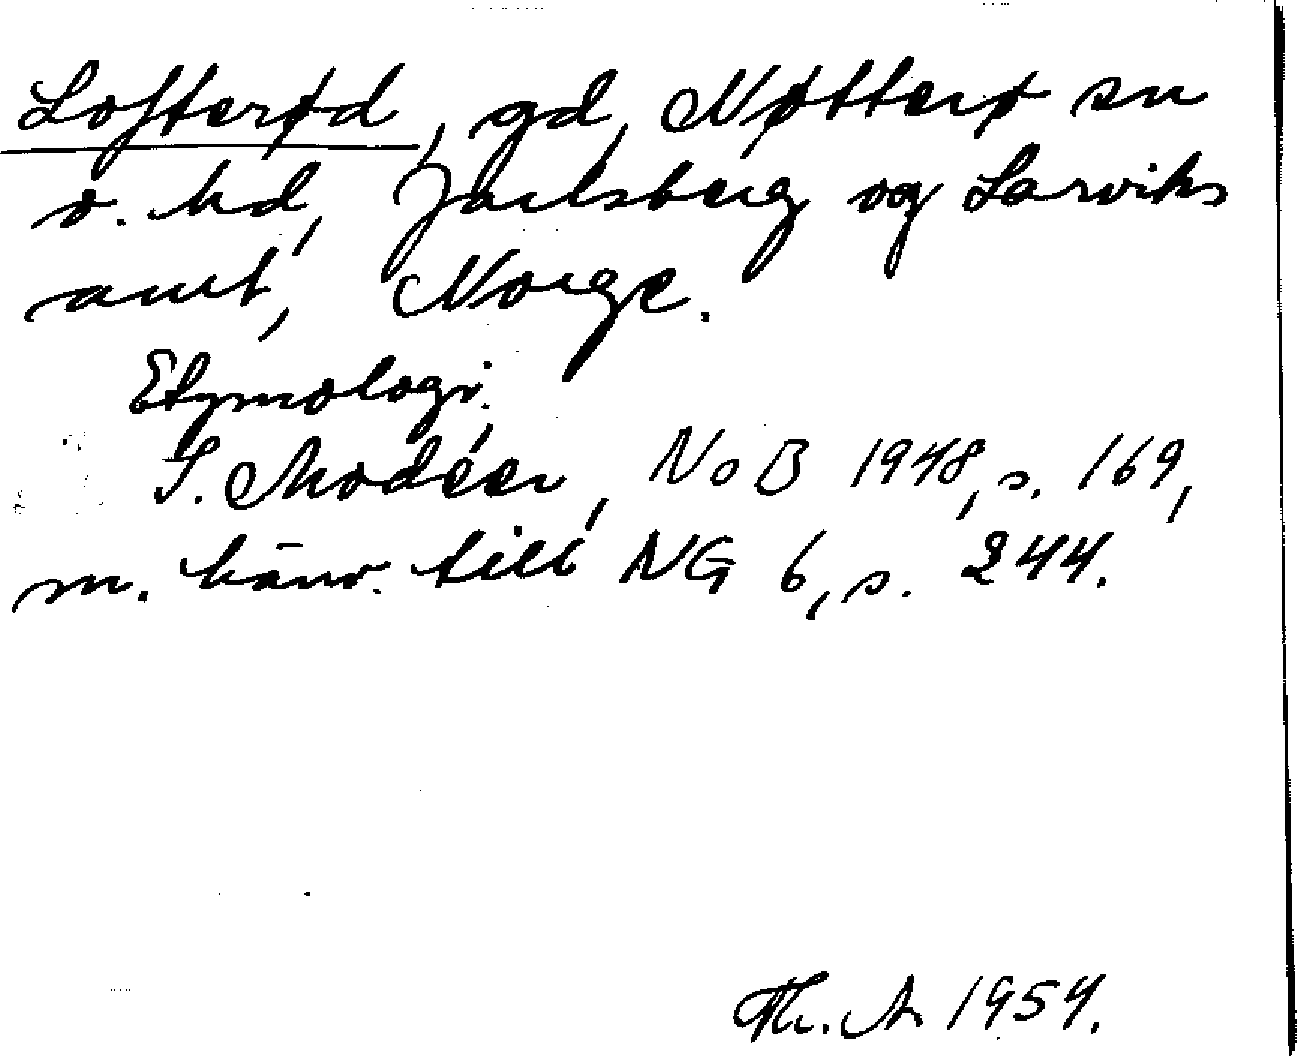 Lofterød, gd, Nøtterø sn
o. hd, Jarlsberg og Larviks
amt, Norge.
Etymologi.
I. Modéer, NoB 1948, s. 169,
m. hänv. till NG 6, s. 244.
Th. A 1954.